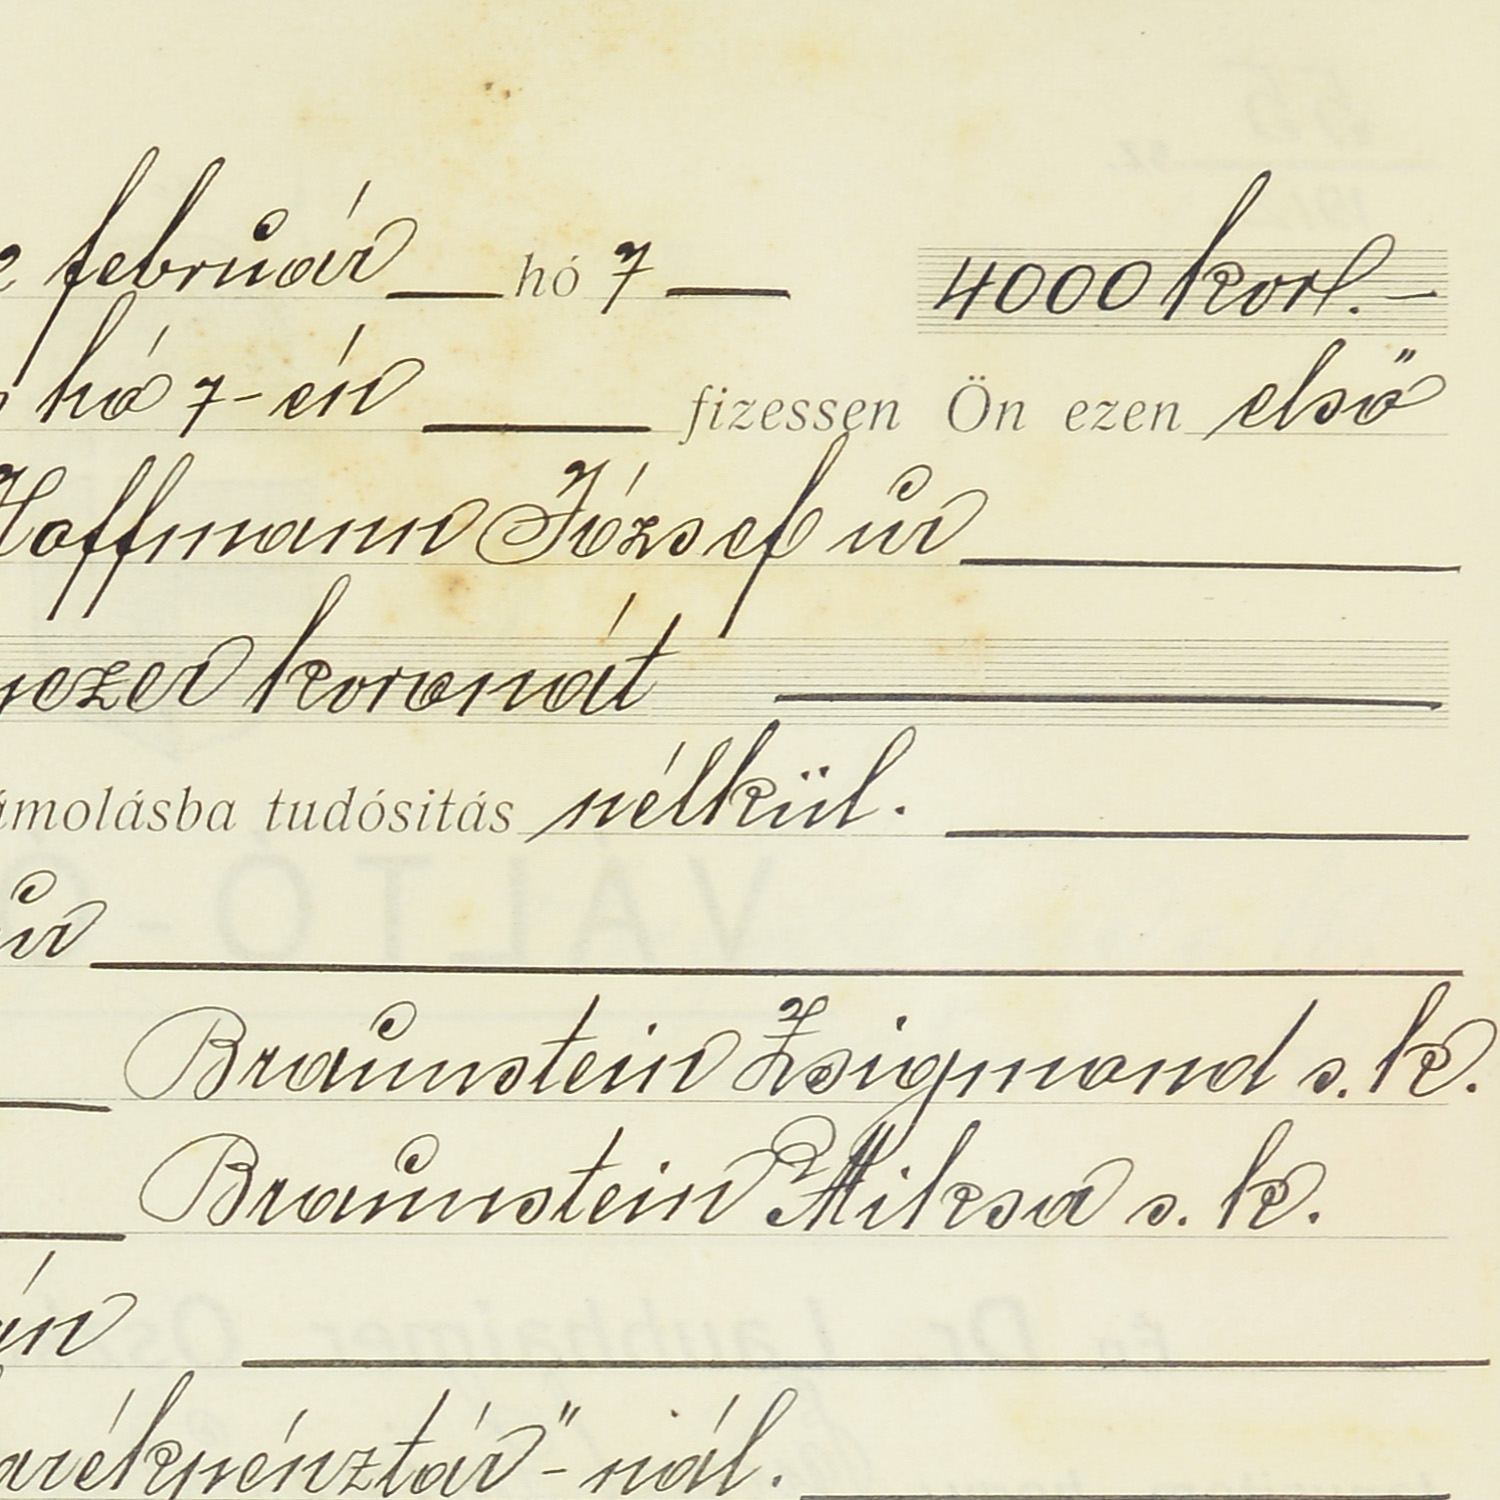 február hó 7 4000 kor.-
hó 7-én fizessen Ön ezen első
Hoffmann József úr
ezer koronát
ámolásba tudósitás nélkül.
úr
Braunstein Zsigmond s. k.
Braunstein Miksa s. k.
án
arékpénztár"-nál.